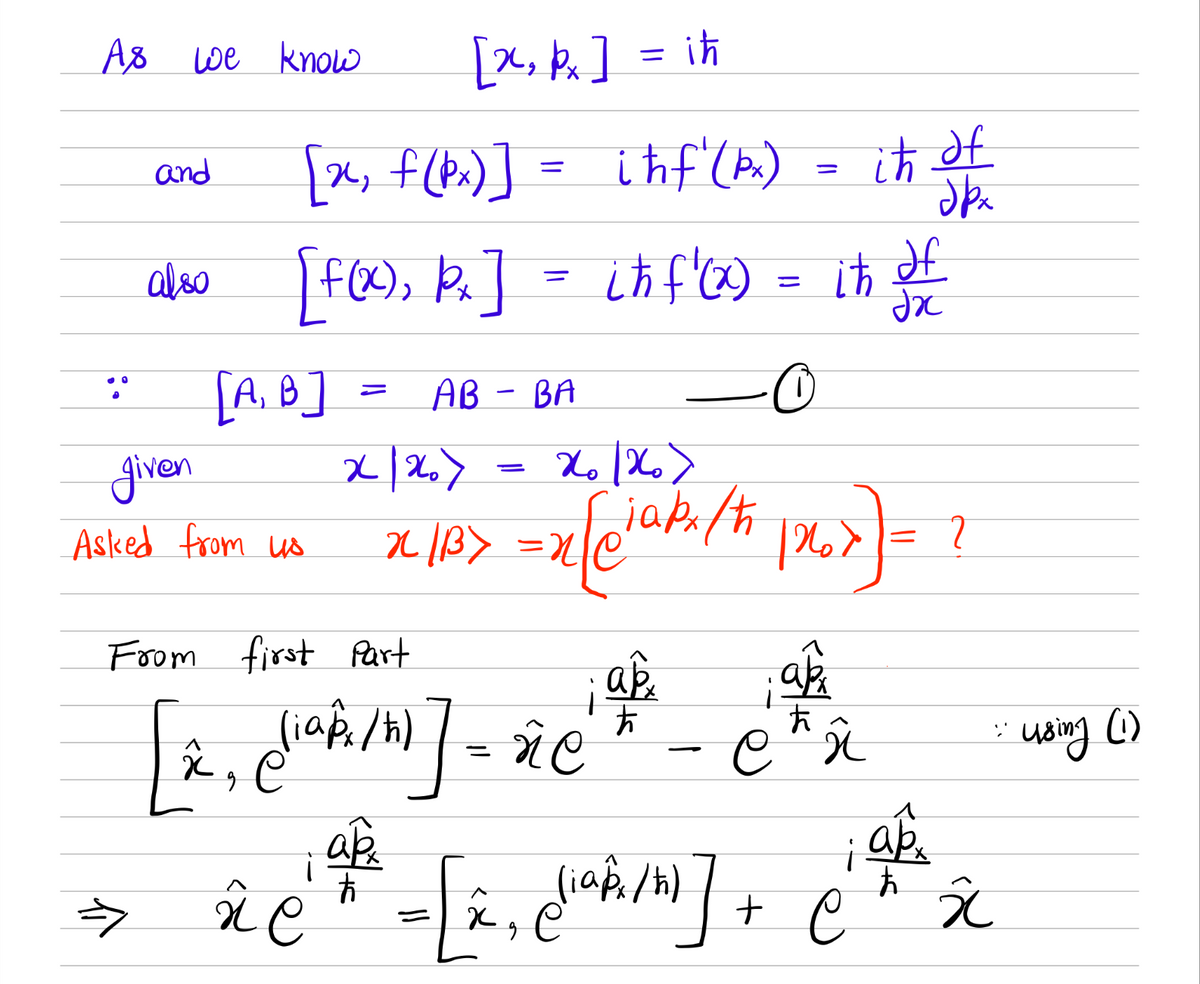 As we know [x, pₓ] = iħ
and [x, f(pₓ)] = iħf'(pₓ) = iħ ∂f/∂pₓ
also [f(x), pₓ] = iħf'(x) = iħ ∂f/∂x
∵ [A, B] = AB - BA —①
given x|x₀⟩ = x₀|x₀⟩
Asked from us x|β⟩ = x[e^{iapₓ/ħ} |x₀⟩] = ?
From first Part
[x̂, e^{(iap̂ₓ/ħ)}] = x̂ e^{i ap̂ₓ/ħ} - e^{i ap̂ₓ/ħ} x̂ ∵ using (1)
⇒ x̂ e^{i ap̂ₓ/ħ} = [x̂, e^{(iap̂ₓ/ħ)}] + e^{i ap̂ₓ/ħ} x̂